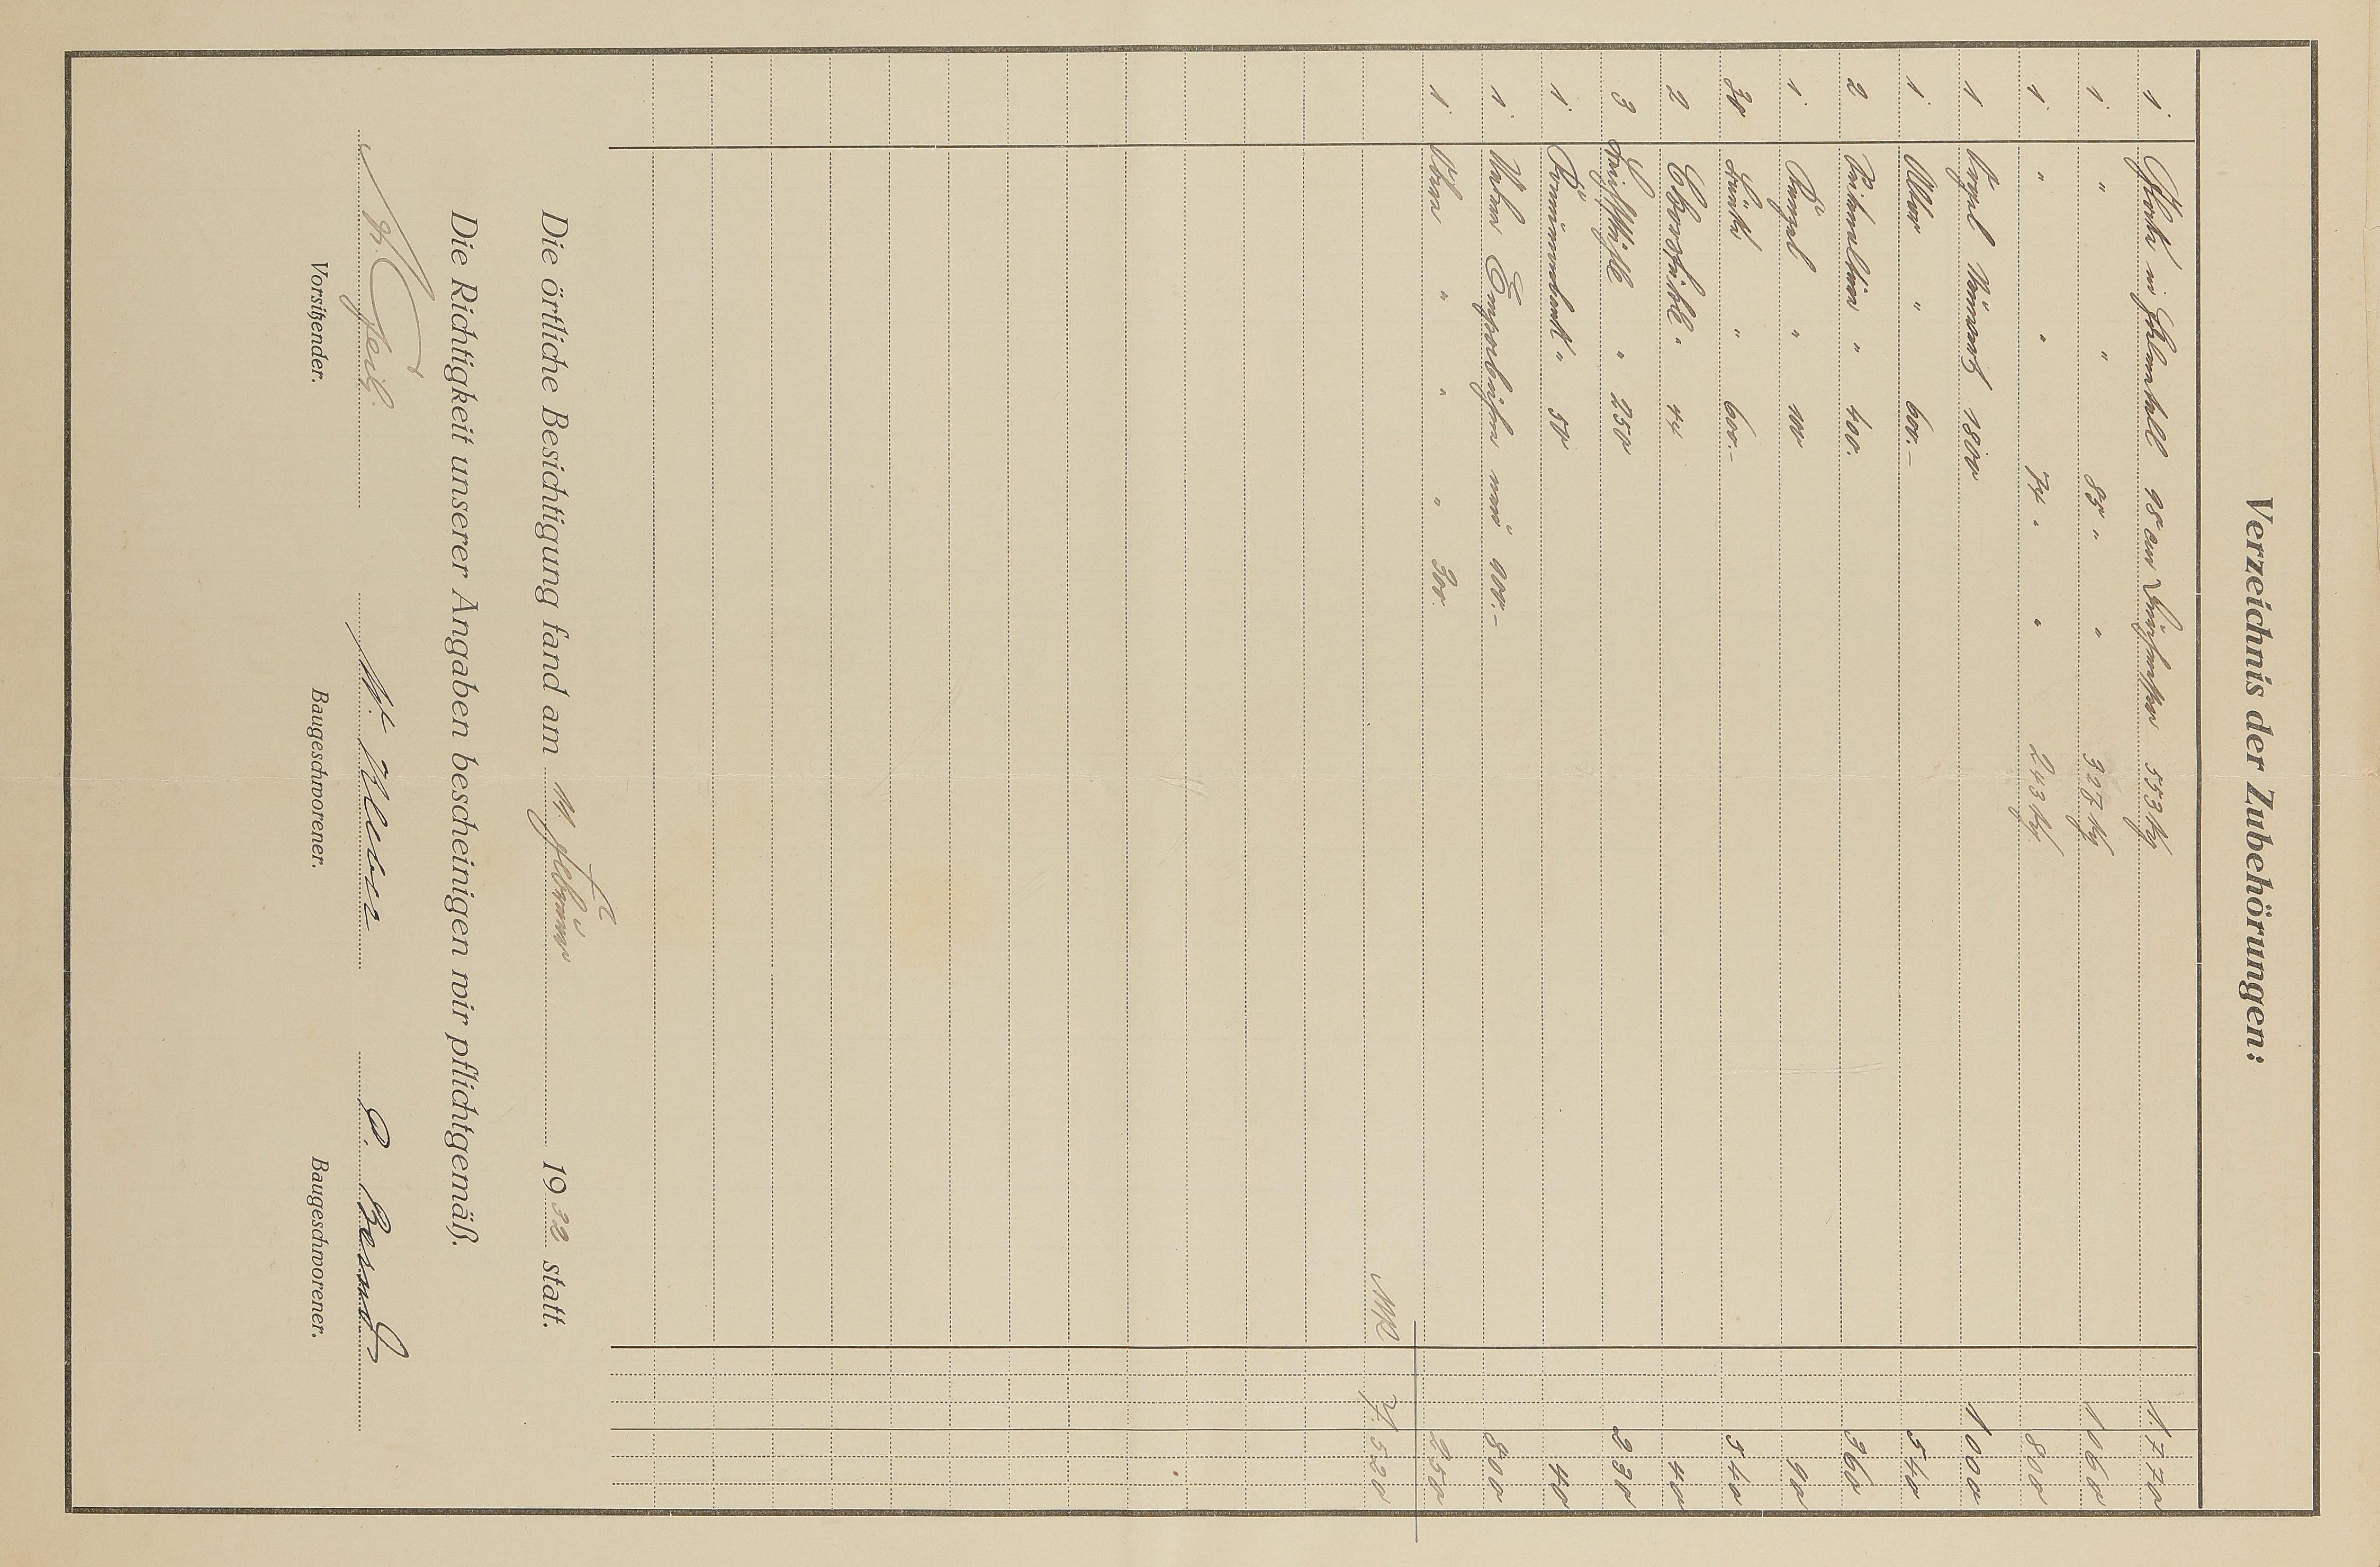 Verzeichnis der Zubehörungen:
1 Glocke in Stahlmetall 98 cm Durchmesser 553 kg 1.770
1 " " 85 " " 327 kg 1060
1 " " 74 " " 243 kg. 800
1 Orgel Neuwert 1800 1000
1 Altar " 600.- 540
2 " 400. 360
1 " 100 90
30 Bänke " 600.- 540
2 Chorstühle " 44 40
3 " 250 230
1 50 40
1 Untere Emporbühne neu 900.- 800
1 Obere " " " 300. 250
MK 7.520
Die örtliche Besichtigung fand am 11. Februar 1932 statt.
Die Richtigkeit unserer Angaben bescheinigen wir pflichtgemäß.
W. Weber
Vorsitzender. Baugeschworener. Baugeschworener.